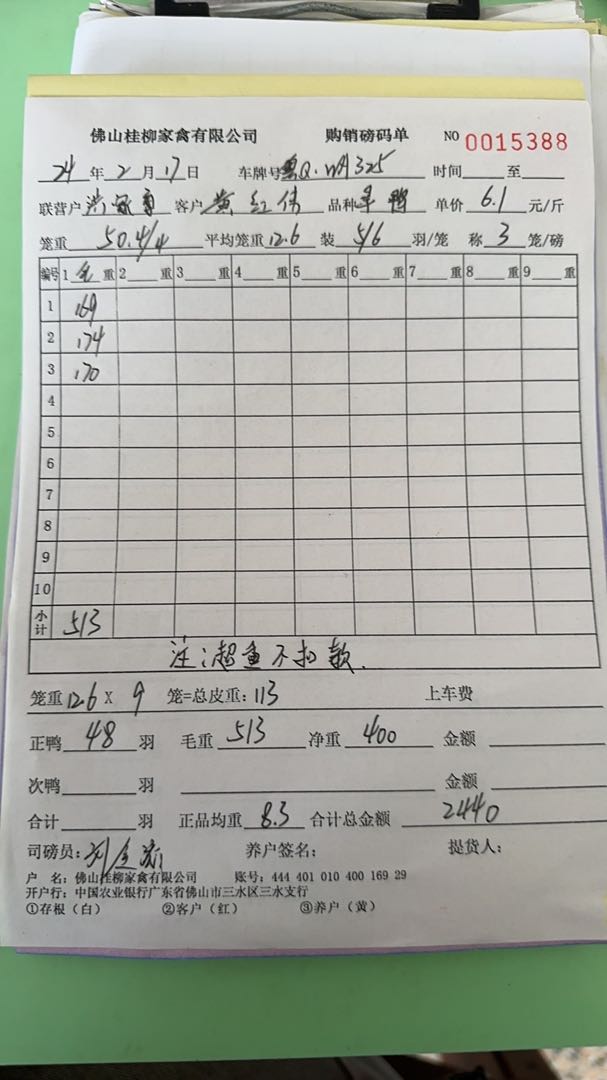 佛山桂柳家禽有限公司 购销磅码单 NO 0015388
24 年 2 月 17 日 车牌号 粤Q·WA325 时间 至
联营户 客户 黄红伟 品种 单价 6.1 元/斤
笼重 50.4/4 平均笼重 12.6 装 5/6 羽/笼 称 3 笼/磅
编号 1 毛 重 2 重 3 重 4 重 5 重 6 重 7 重 8 重 9 重
1 169
2 174
3 170
4
5
6
7
8
9
10
小计 513
注:超重不扣款.
笼重 12.6 X 9 笼=总皮重: 113 上车费
正鸭 48 羽 毛重 513 净重 400 金额
次鸭 羽 金额
合计 羽 正品均重 8.3 合计总金额 2440
司磅员: 养户签名: 提货人:
户 名: 佛山桂柳家禽有限公司 账号: 444 401 010 400 169 29
开户行: 中国农业银行广东省佛山市三水区三水支行
①存根(白) ②客户(红) ③养户(黄)